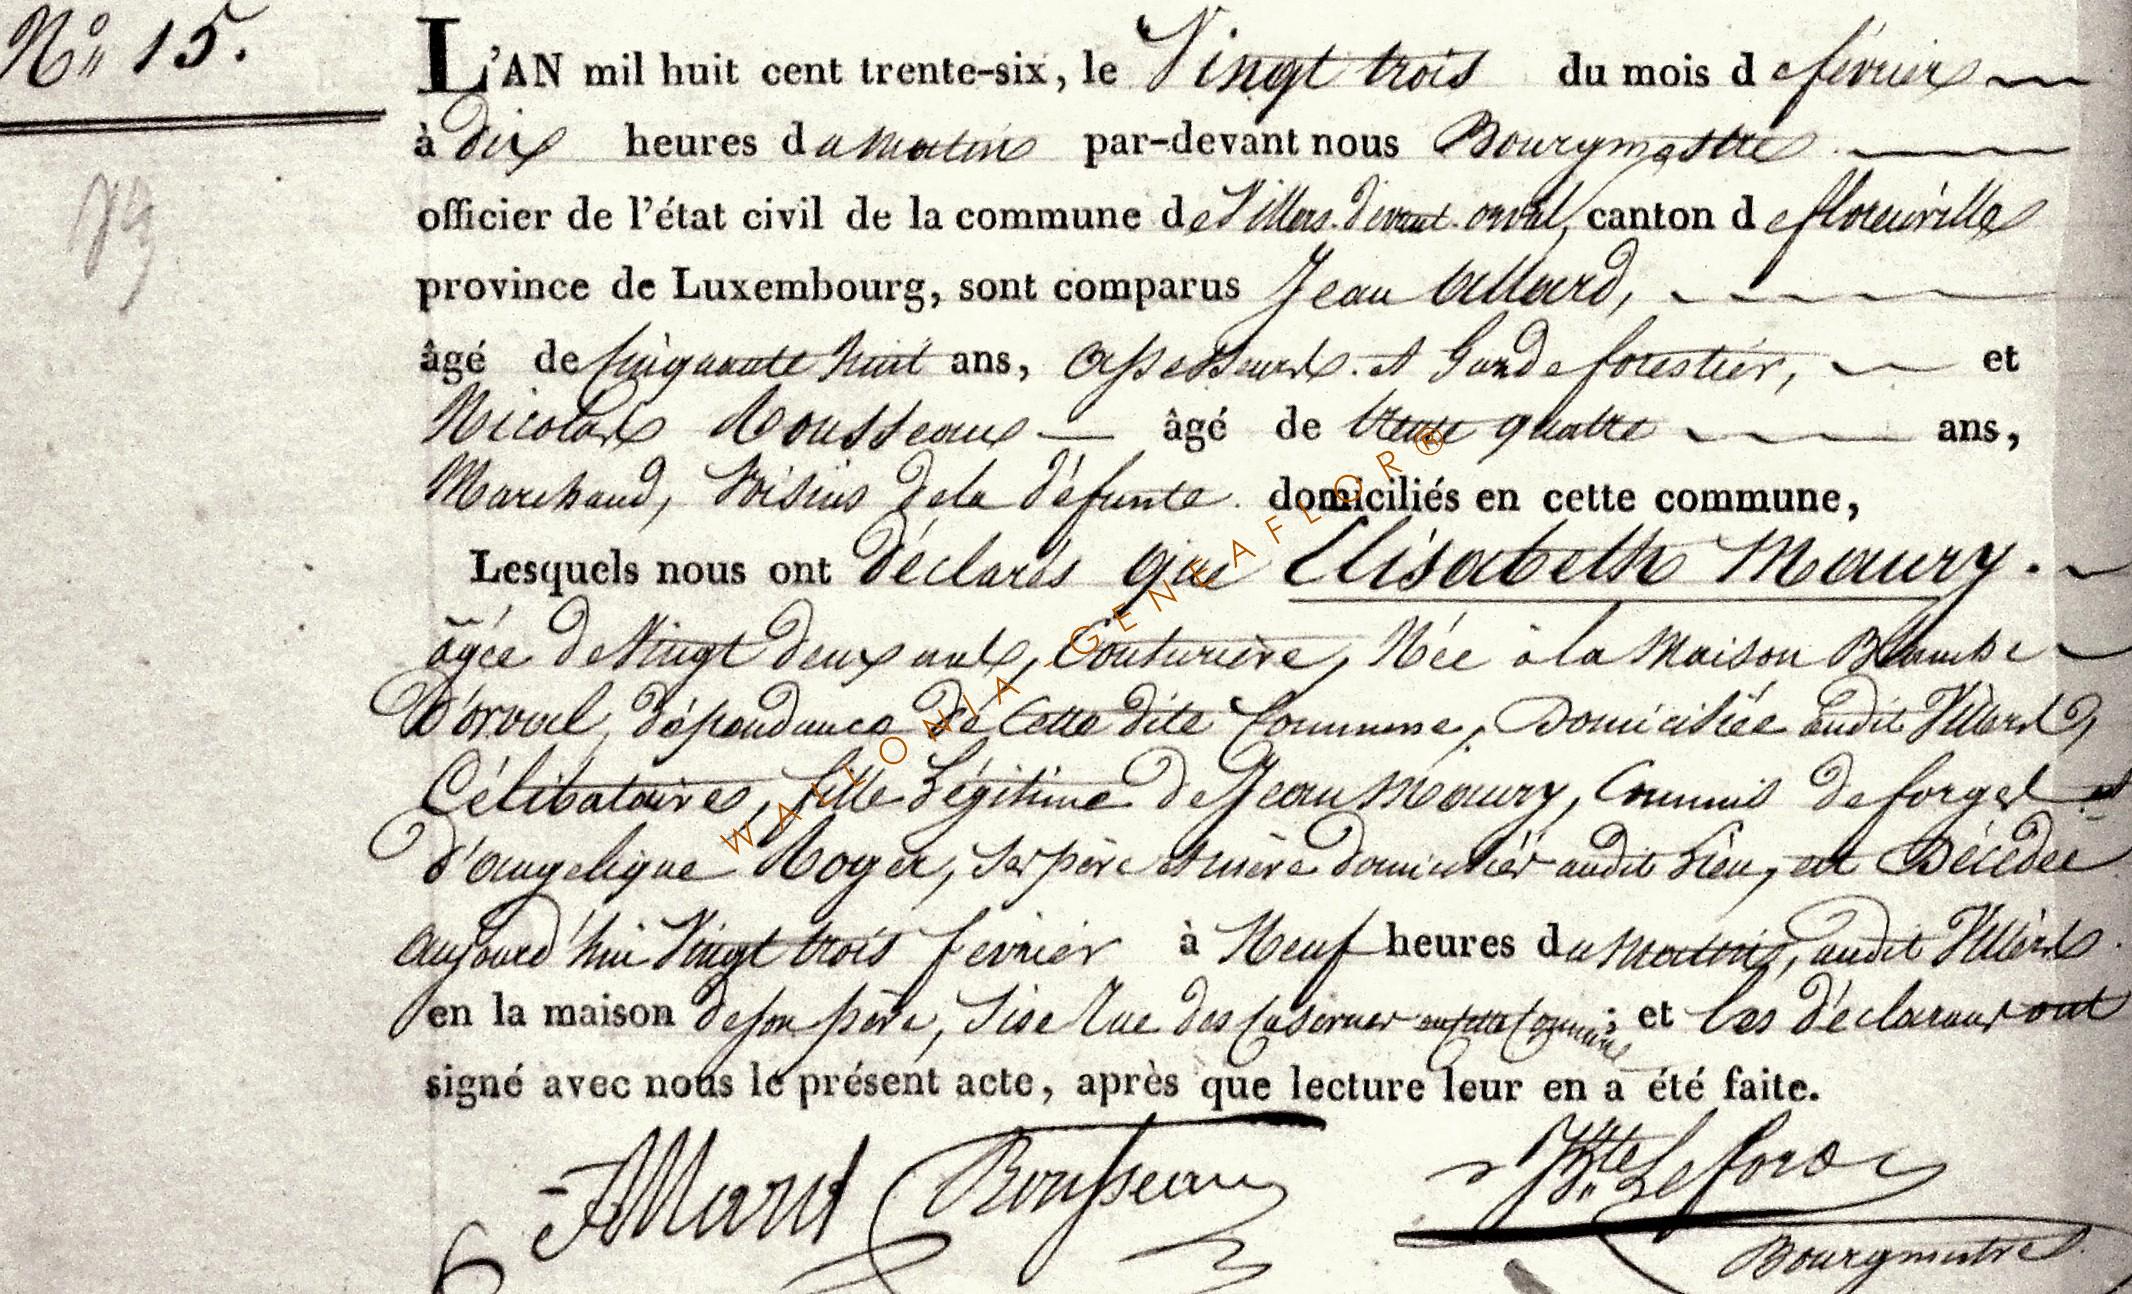 N° 15.
L'AN mil huit cent trente-six, le Vingt trois du mois de fevrier
à dix heures du matin par-devant nous Bourgmestre
officier de l'état civil de la commune de Villers devant orval, canton de florenville
province de Luxembourg, sont comparus Jean Allard,
âgé de Cinquante huit ans, assesseur et Garde forestier, et
Nicolas Rousseaux âgé de trente quatre ans,
Marchand, Voisins de la défunte domiciliés en cette commune,
Lesquels nous ont déclarés que Elisabeth Maury.
âgée de Vingt deux ans, Couturière, Née à la Maison Blanche
D'orval, dépendance de Cette dite Commune, Domiciliée audit Villers,
Célibataire, fille Légitime de Jean Maury, Commis de forges et
d'angelique Roger, ses père et mère domiciliés audit Lieu, est Décédée
aujourd'hui Vingt trois fevrier à Neuf heures du matin, audit Villers
en la maison de son père, Sise Rue des Casernes en cette Commune; et les déclarans ont
signé avec nous le présent acte, après que lecture leur en a été faite.
Allard Rousseaux Lefort
Bourgmestre
WALLONIA-GENEAFLOR®